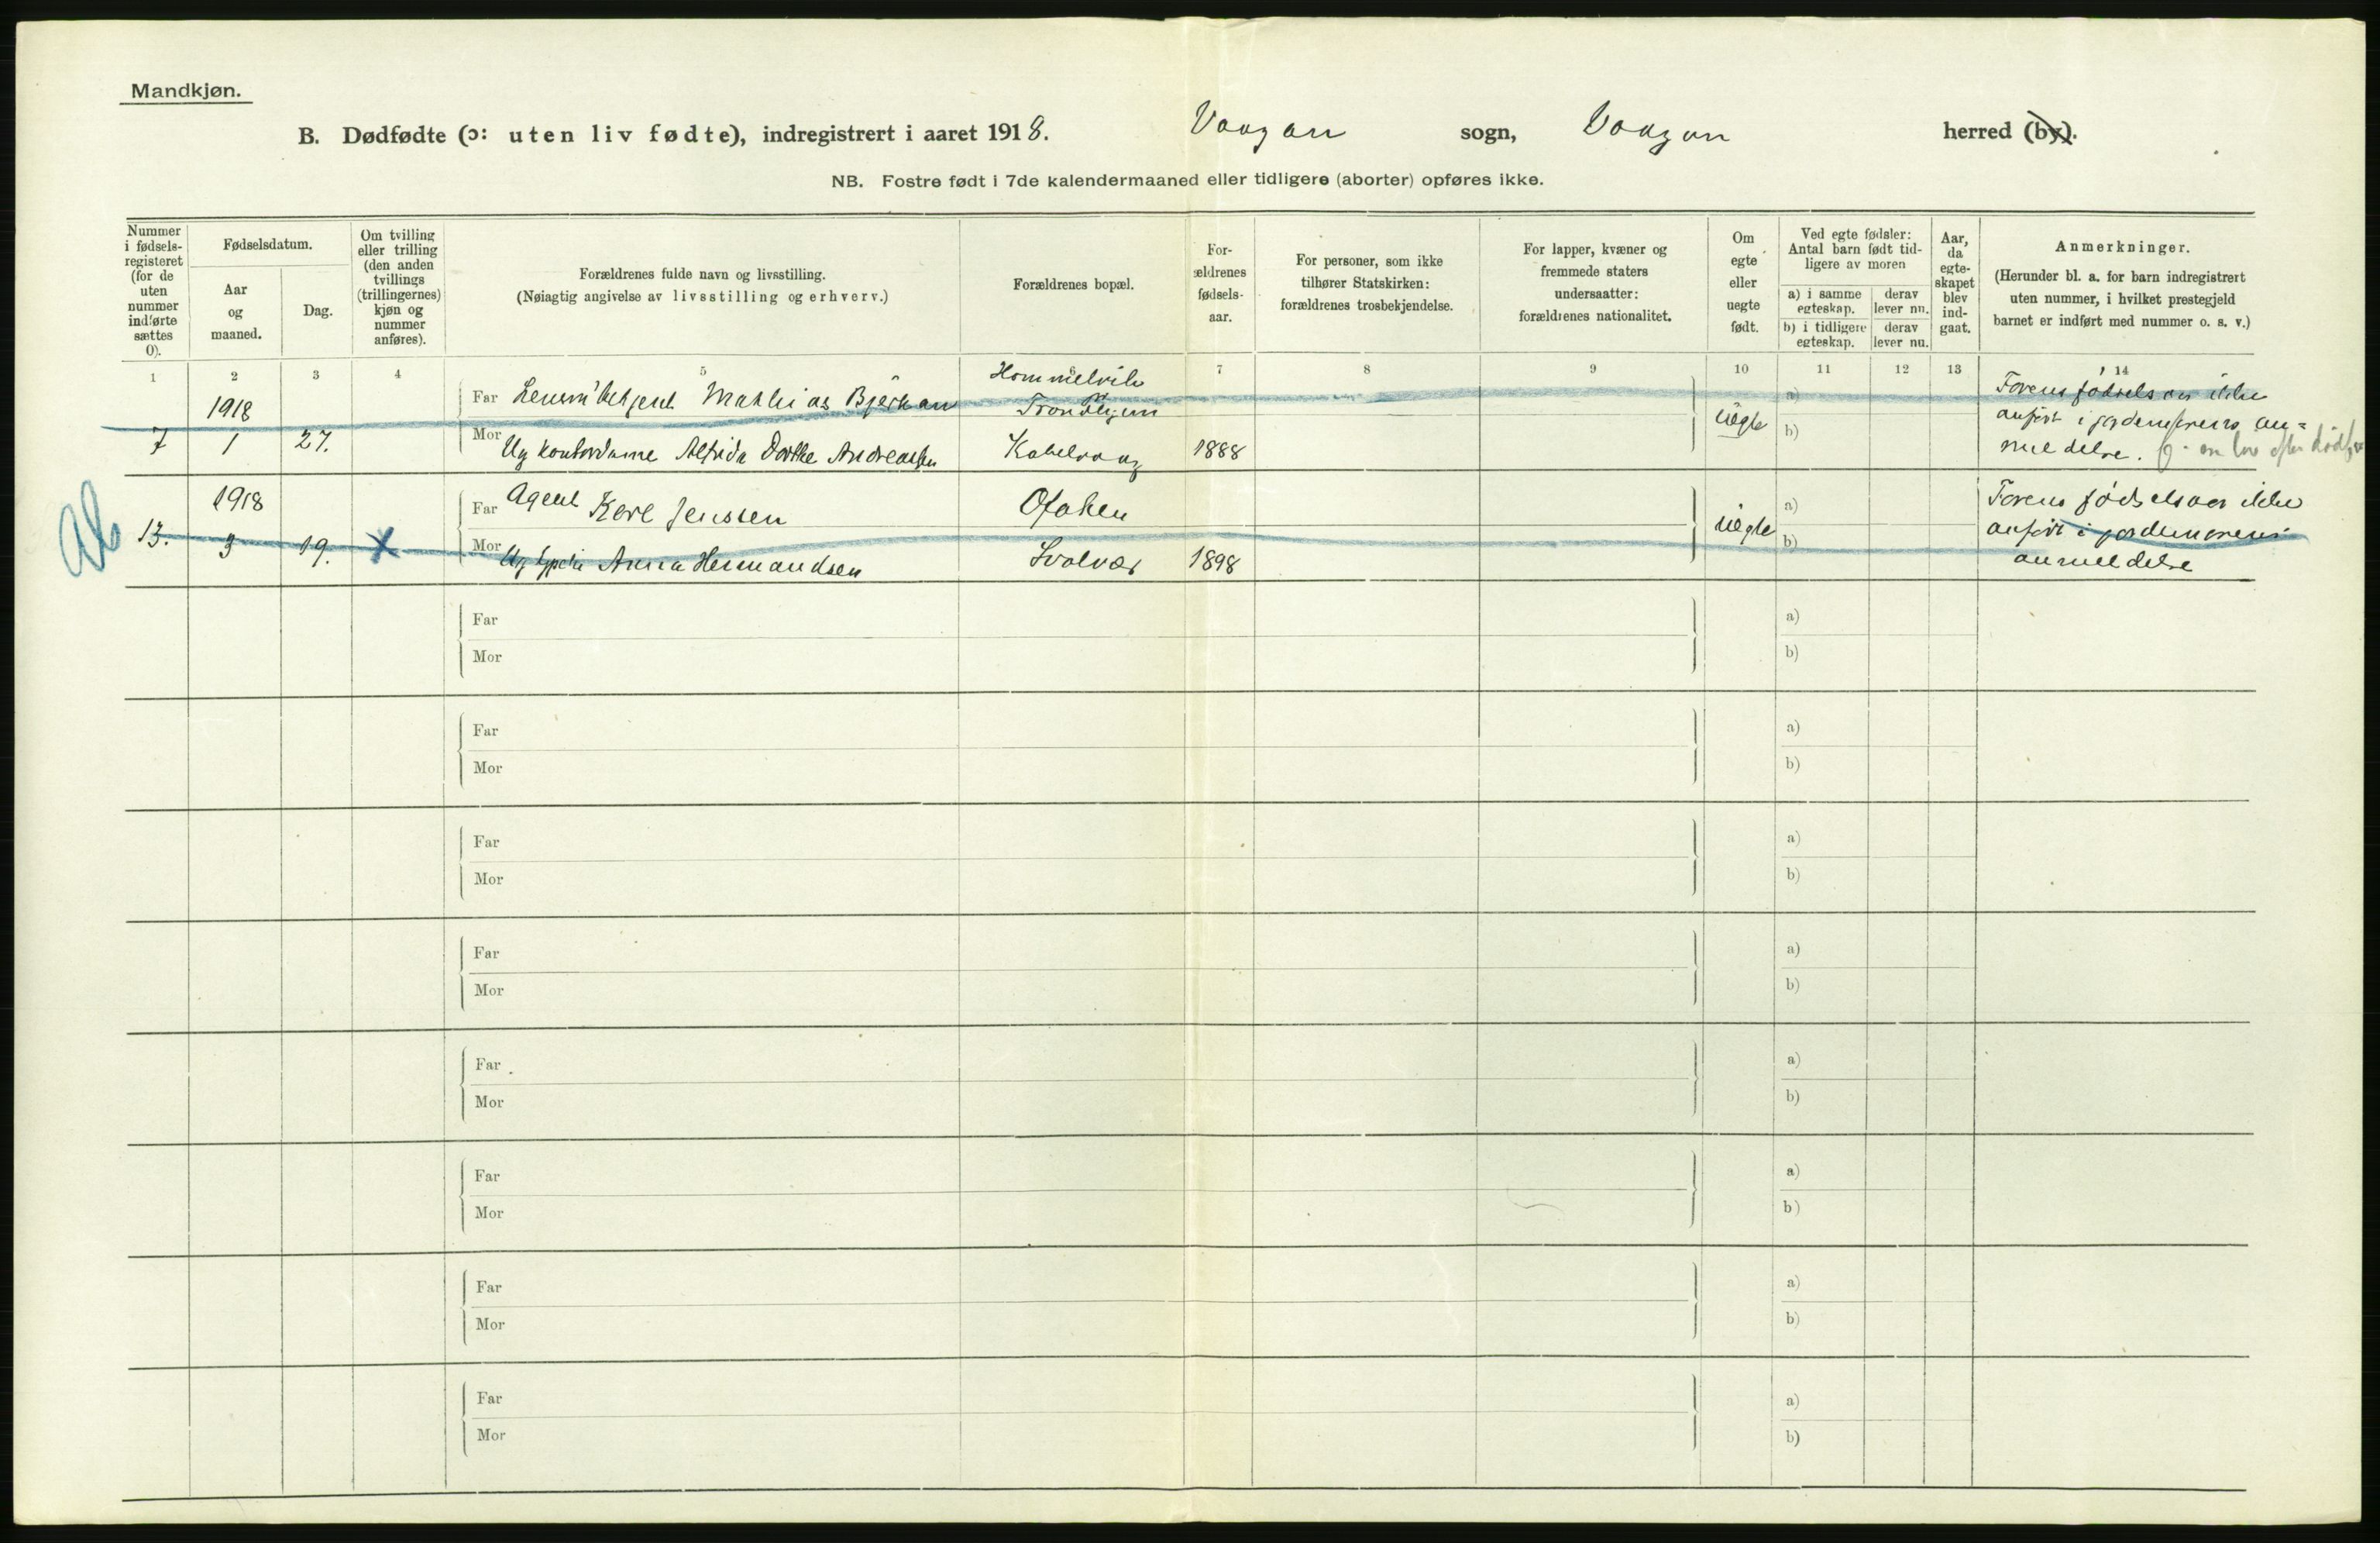 Mandkjøn.
B. Dødfødte (ɔ: uten liv fødte), indregistrert i aaret 1918. Vaagan sogn, Vaagan herred (by).
NB. Fostre født i 7de kalendermaaned eller tidligere (aborter) opføres ikke.
Nummer i fødsels-registeret (for de uten nummer indførte sættes 0).
Fødselsdatum.
Aar og maaned.
Dag.
Om tvilling eller trilling (den anden tvillings (trillingernes) kjøn og nummer anføres).
Forældrenes fulde navn og livsstilling.
(Nøiagtig angivelse av livsstilling og erhverv.)
Forældrenes bopæl.
For-ældrenes fødsels-aar.
For personer, som ikke tilhører Statskirken: forældrenes trosbekjendelse.
For lapper, kvæner og fremmede staters undersaatter: forældrenes nationalitet.
Om egte eller uegte født.
Ved egte fødsler: Antal barn født tid-ligere av moren
a) i samme egteskap.
derav lever nu.
b) i tidligere egteskap.
derav lever nu.
Aar, da egte-skapet blev ind-gaat.
Anmerkninger.
(Herunder bl. a. for barn indregistrert uten nummer, i hvilket prestegjeld barnet er indført med nummer o. s. v.)
1 2 3 4 5 6 7 8 9 10 11 12 13 14
7 1918 1 27.
Far Mathias Bjerkan Hommelvik Trondhjem
Mor Ug kontordame Alfrida Dorthe Andreassen Kabelvaag 1888
uegte a) b)
Farens fødselsaar ikke
anført i jordemorens an=
meldelse.
13. 1918 3 19. X
Far Agent Kare Jenssen Ofoten
Mor Ug Anna Hermandsen Svolvær 1898
uegte a) b)
Farens fødselsaar ikke
anført i jordemorens
anmeldelse
Far a)
Mor b)
Far a)
Mor b)
Far a)
Mor b)
Far a)
Mor b)
Far a)
Mor b)
Far a)
Mor b)
Far a)
Mor b)
Far a)
Mor b)